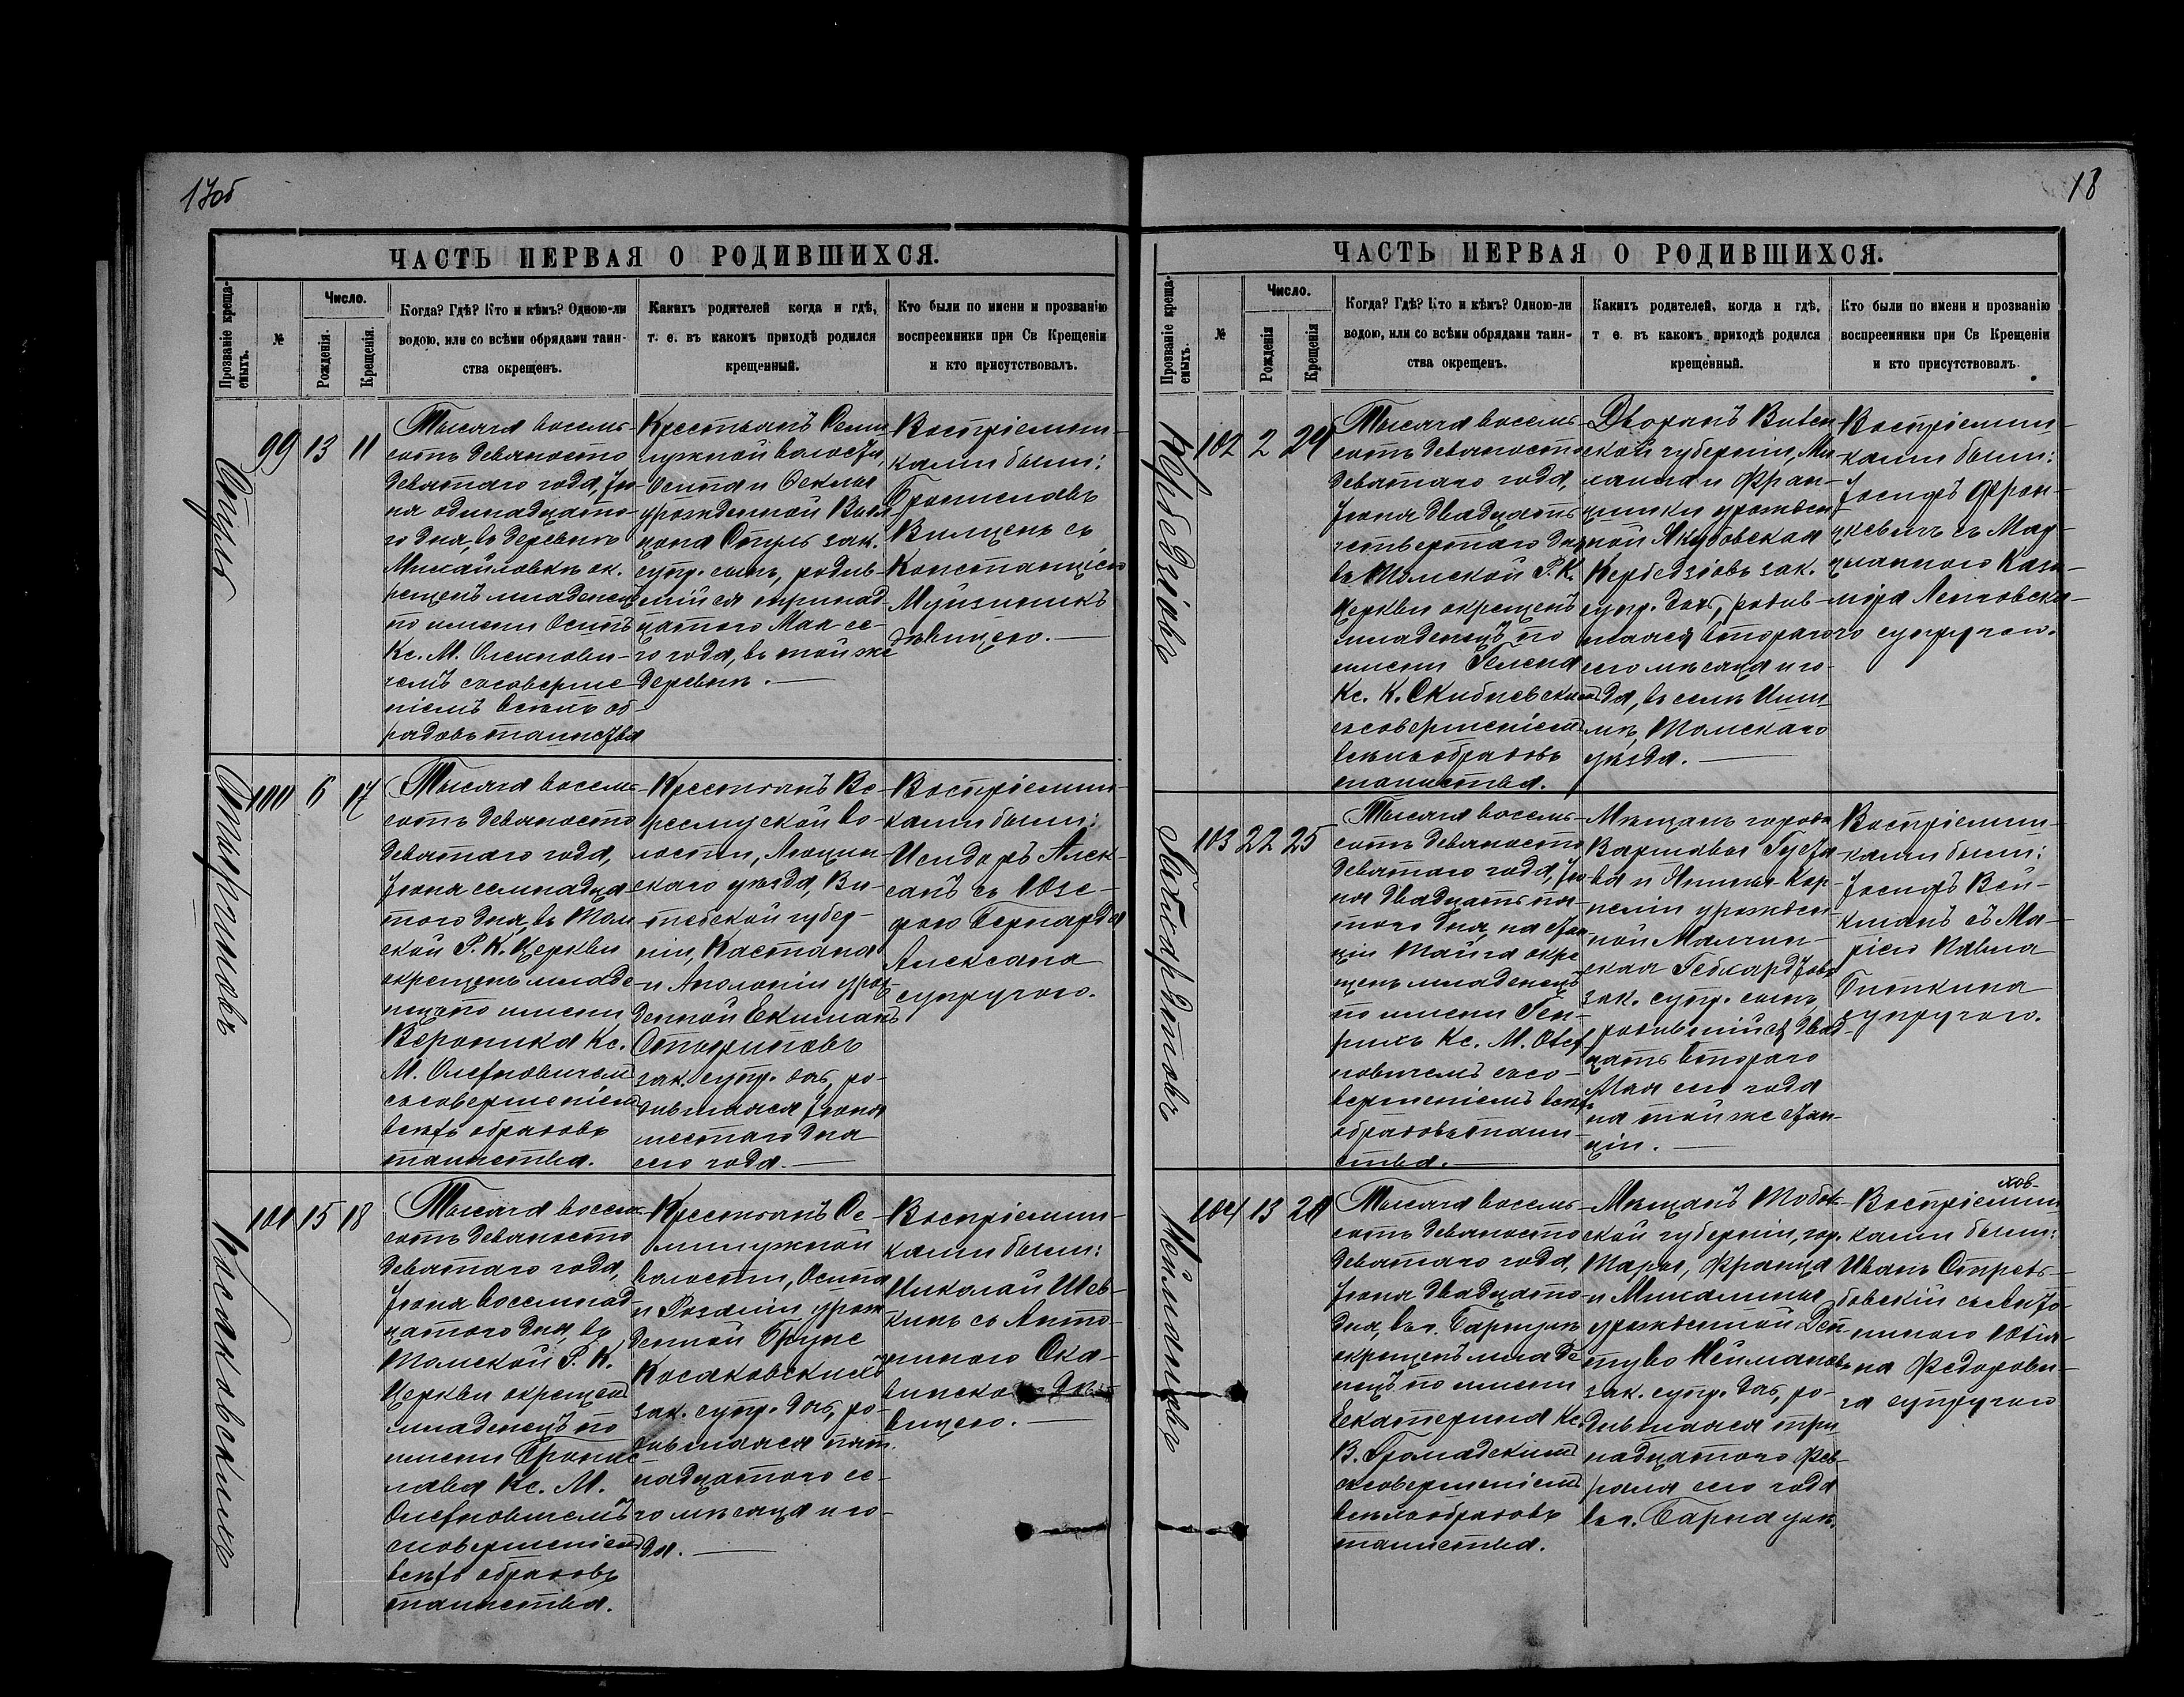 17об
ЧАСТЬ ПЕРВАЯ О РОДИВШИХСЯ.
Прозваніе креща-
емыхъ.
№
Число.
Рожденія.
Крещенія.
Когда? Гдѣ? Кто и кѣмъ? Одною-ли
водою, или со всѣми обрядами таин-
ства окрещенъ.
Какихъ родителей когда и гдѣ,
т. е. въ какомъ приходѣ родился
крещенный.
Кто были по имени и прозванію
воспреемники при Св Крещеніи
и кто присутствовалъ.
99 13 11
Тысяча восемь-
сотъ девяносто
девятаго года, Ію-
ня одинадцата-
го дня, въ деревнѣ
Михайловкѣ ок-
рещенъ младенецъ
по имени Осипъ
Кс. М. Олехнови-
чемъ съ соверше-
ніемъ всѣхъ об-
рядовъ таинства
Крестьянъ
лужной волости,
Осипа и Феклы
урожденной
Опуль зак.
супр. сынъ, родив-
шійся тринад-
цатого Мая се-
го года, въ той же
деревнѣ.
Воспріемни-
ками были:
Брониславъ
съ
Констанціею
дѣвицею.
100 6 17
Тысяча восемь-
сотъ девяносто
девятаго года,
Іюня семнадца-
того дня, въ Том-
ской Р. К. Церкви
окрещенъ младе-
нецъ по имени
Вероника Кс.
М. Олехновичемъ
съ совершеніемъ
всѣхъ обрядовъ
таинства.
Крестьянъ
волости, Люцин-
скаго уѣзда, Ви-
тебской губер-
ніи, Кастана
и Аполоніи урож-
денной Екиманъ
зак. супр. дочь, ро-
дившаяся Іюня
шестаго дня
сего года.
Воспріемни-
ками были:
Исидоръ Алек-
санъ съ Юзе-
фою Бернарда
Алексана
супругою.
Косаковскихъ
101 15 18
Тысяча восемь-
сотъ девяносто
девятаго года,
Іюня восемнад-
цатого дня, въ
Томской Р. К.
Церкви окрещенъ
младенецъ по
имени Бронис-
лава Кс. М.
Олехновичемъ
съ совершеніемъ
всѣхъ обрядовъ
таинства.
Крестьянъ
волости, Осипа
и Розаліи урож-
денной
Косаковскихъ
зак. супр. дочь, ро-
дившаяся пят-
надцатого се-
го мѣсяца и го-
да.
Воспріемни-
ками были:
Николай
съ Анто-
ниною
вицею.
18
ЧАСТЬ ПЕРВАЯ О РОДИВШИХСЯ.
Прозваніе креща-
емыхъ.
№
Число.
Рожденія
Крещенія
Когда? Гдѣ? Кто и кѣмъ? Одною-ли
водою, или со всѣми обрядами таин-
ства окрещенъ.
Какихъ родителей, когда и гдѣ,
т е. въ какомъ приходѣ родился
крещенный.
Кто были по имени и прозванію
воспреемники при Св Крещеніи
и кто присутствовалъ.
Кербедзіовъ
102 2 24
Тысяча восемь-
сотъ девяносто
девятаго года,
Іюня двадцать
четвертаго дня
въ Томской Р. К.
Церкви окрещенъ
младенецъ по
имени Гелена
Кс. К. Скибневскимъ
съ совершеніемъ
всѣхъ обрядовъ
таинства.
Дворянъ Витеб-
ской губерніи,
и Фран-
цишки урожден-
ной Якубовская
Кербедзіовъ зак.
супр. дочь, родив-
шаяся второго
сего мѣсяца и го-
да, въ селѣ
Томскаго
уѣзда.
Воспріемни-
ками были:
Іосифъ Фран-
цкевичъ съ Мар-
цианною Кази-
міра
го супругою.
Гебгардтовъ
103 22 25
Тысяча восемь-
сотъ девяносто
девятаго года, Ію-
ня двадцать пя-
того дня на стан-
ціи Тайга окре-
щенъ младенецъ
по имени Ген-
рихъ Кс. М. Олех-
новичемъ съ со-
вершеніемъ всѣхъ
обрядовъ таин-
ства.
Мѣщанъ города
Варшавы Густа-
ва и
урожден-
ной
зак. супр. сынъ,
родившійся двад-
цать второго
Мая сего года
на той же стан-
ціи.
Воспріемни-
ками были:
Іосифъ Вей-
кманъ съ Ма-
ріею Павла
супругою.
Неймановъ
104 13 20
Тысяча восемь-
сотъ девяносто
девятаго года,
Іюня двадцато
дня, въ г. Барнаулѣ
окрещенъ младе-
нецъ по имени
Екатерина Кс.
В. Громадскимъ
съ совершеніемъ
всѣхъ обрядовъ
таинства.
Мѣщанъ Тоболь-
ской губерніи, гор.
Тары, Франца
и Михалины
урожденной
Неймановъ
зак. супр. дочь, ро-
дившаяся три-
надцатого Фев-
раля сего года
въ г. Барнаулѣ.
Воспріемни-
ками были:
Иванъ
съ
Федорови-
ча супругою